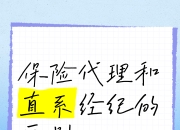 保险代理和
直系经纪的